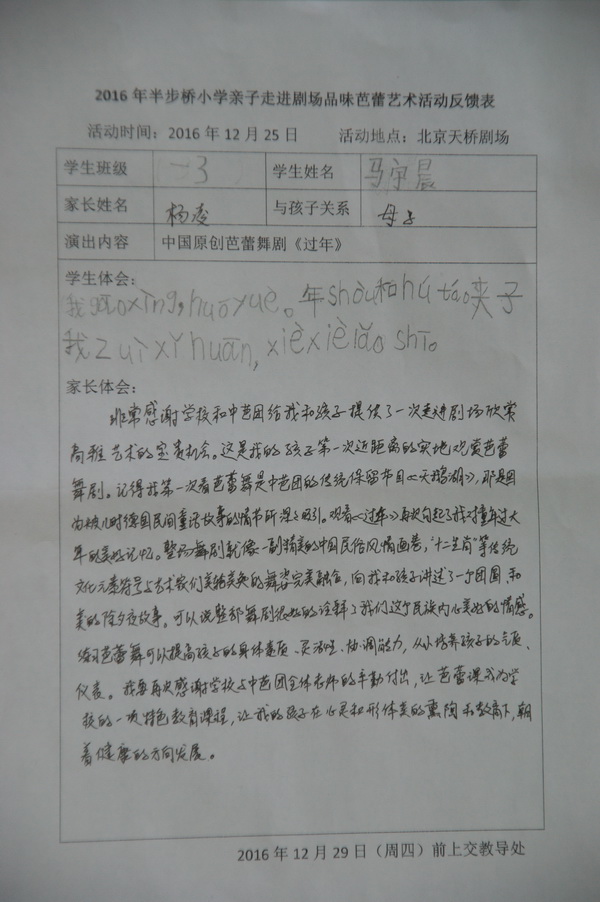 2016 年半步桥小学亲子走进剧场品味芭蕾艺术活动反馈表
活动时间：2016 年 12 月 25 日 活动地点：北京天桥剧场
学生班级 一3 学生姓名 马宇晨
家长姓名 杨凌 与孩子关系 母子
演出内容 中国原创芭蕾舞剧《过年》
学生体会：
我gāoxìng,huōyuè。年shòu和hú táo夹子
我zuì xǐ huān,xièxièlǎo shī。
家长体会：
非常感谢学校和中芭团给我和孩子提供了一次走进剧场欣赏
高雅艺术的宝贵机会。这是我的孩子第一次近距离的实地观赏芭蕾
舞剧。记得我第一次看芭蕾舞是中芭团的传统保留节目《天鹅湖》，那是因
为被儿时德国民间童话故事的情节所深深吸引。观看《过年》再次勾起了我对童年过大
年的美好记忆。整场舞剧就像一副精美的中国民俗风情画卷，“十二生肖”等传统
文化元素符号与艺术家们美轮美奂的舞姿完美融合，向我和孩子讲述了一个团圆、和
美的除夕夜故事。可以说整部舞剧很好的诠释了我们这个民族内心美好的情感。
练习芭蕾舞可以提高孩子的身体素质、灵活性、协调能力，从小培养孩子的气质、
仪表。我要再次感谢学校与中芭团全体老师的辛勤付出，让芭蕾课成为学
校的一项特色教育课程，让我的孩子在心灵和形体美的熏陶和教育下，朝
着健康的方向发展。
2016 年 12 月 29 日（周四）前上交教导处